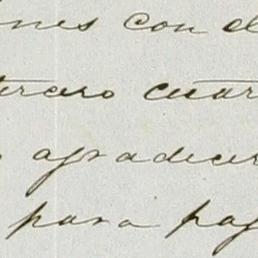 ines con el
tercero cuar
agradecer
para pag